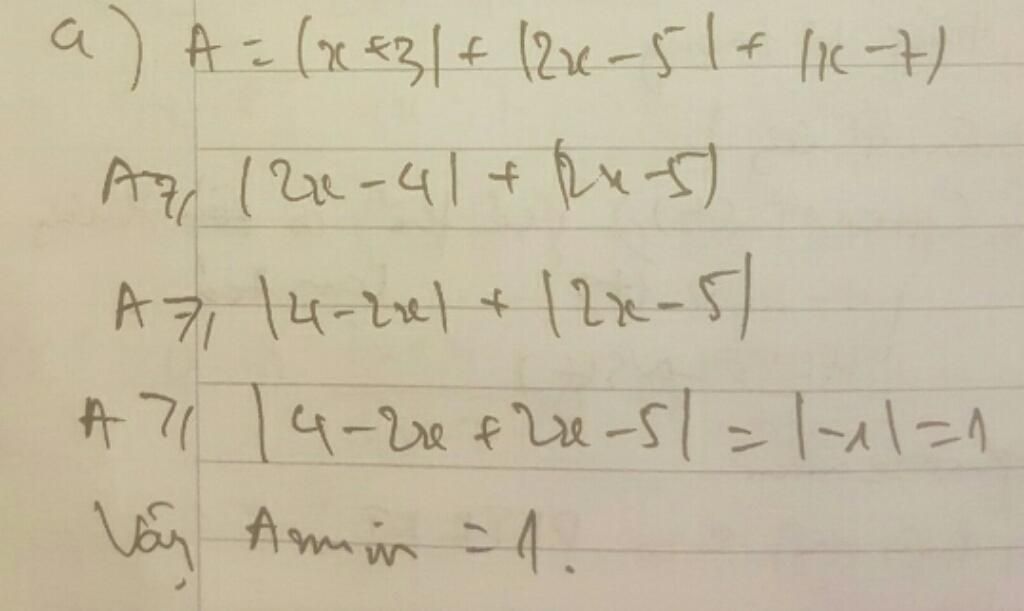 a) A = |x+3| + |2x-5| + |x-7|
A ≥ |2x-4| + |2x-5|
A ≥ |4-2x| + |2x-5|
A ≥ |4-2x+2x-5| = |-1| = 1
Vậy Amin = 1.